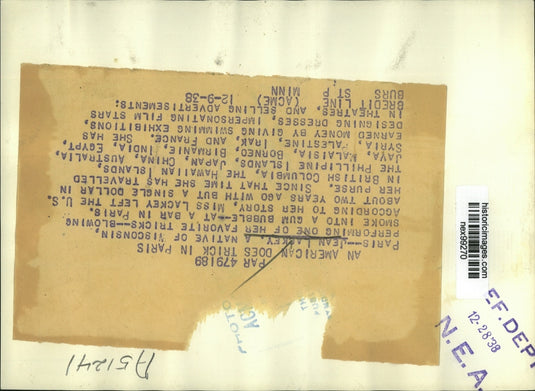 PAR 479189
AN AMERICAN DOES TRICK IN PARIS
PARIS---JEAN LACKEY, A NATIVE OF WISCONSIN,
PERFORMING ONE OF HER FAVORITE TRICKS--BLOWING
SMOKE INTO A GUM BUBBLE--AT A BAR IN PARIS.
ACCORDING TO HER STORY, MISS LACKEY LEFT THE U.S.
ABOUT TWO YEARS AGO WITHOUT A SINGLE DOLLAR IN
HER PURSE. SINCE THAT TIME SHE HAS TRAVELLED
IN BRITISH COLUMBIA, THE HAWAIIAN ISLANDS,
THE PHILLIPINE ISLANDS, JAPAN, CHINA, AUSTRALIA,
JAVA, MALAISIA, BORNEO, BIRMANIE, INDIA, EGYPT,
SYRIA, PALESTINE, IRAK, AND FRANCE. SHE HAS
EARNED MONEY BY GIVING SWIMMING EXHIBITIONS,
DESIGNING DRESSES, IMPERSONATING FILM STARS
IN THEATRES, AND SELLING ADVERTISEMENTS.
CREDIT LINE (ACME) 12-9-38
BURS ST P MINN
PHOTO
AC
historicimages.com
nex99270
EF. DEP
12-28'38
N.E.A.
A51241